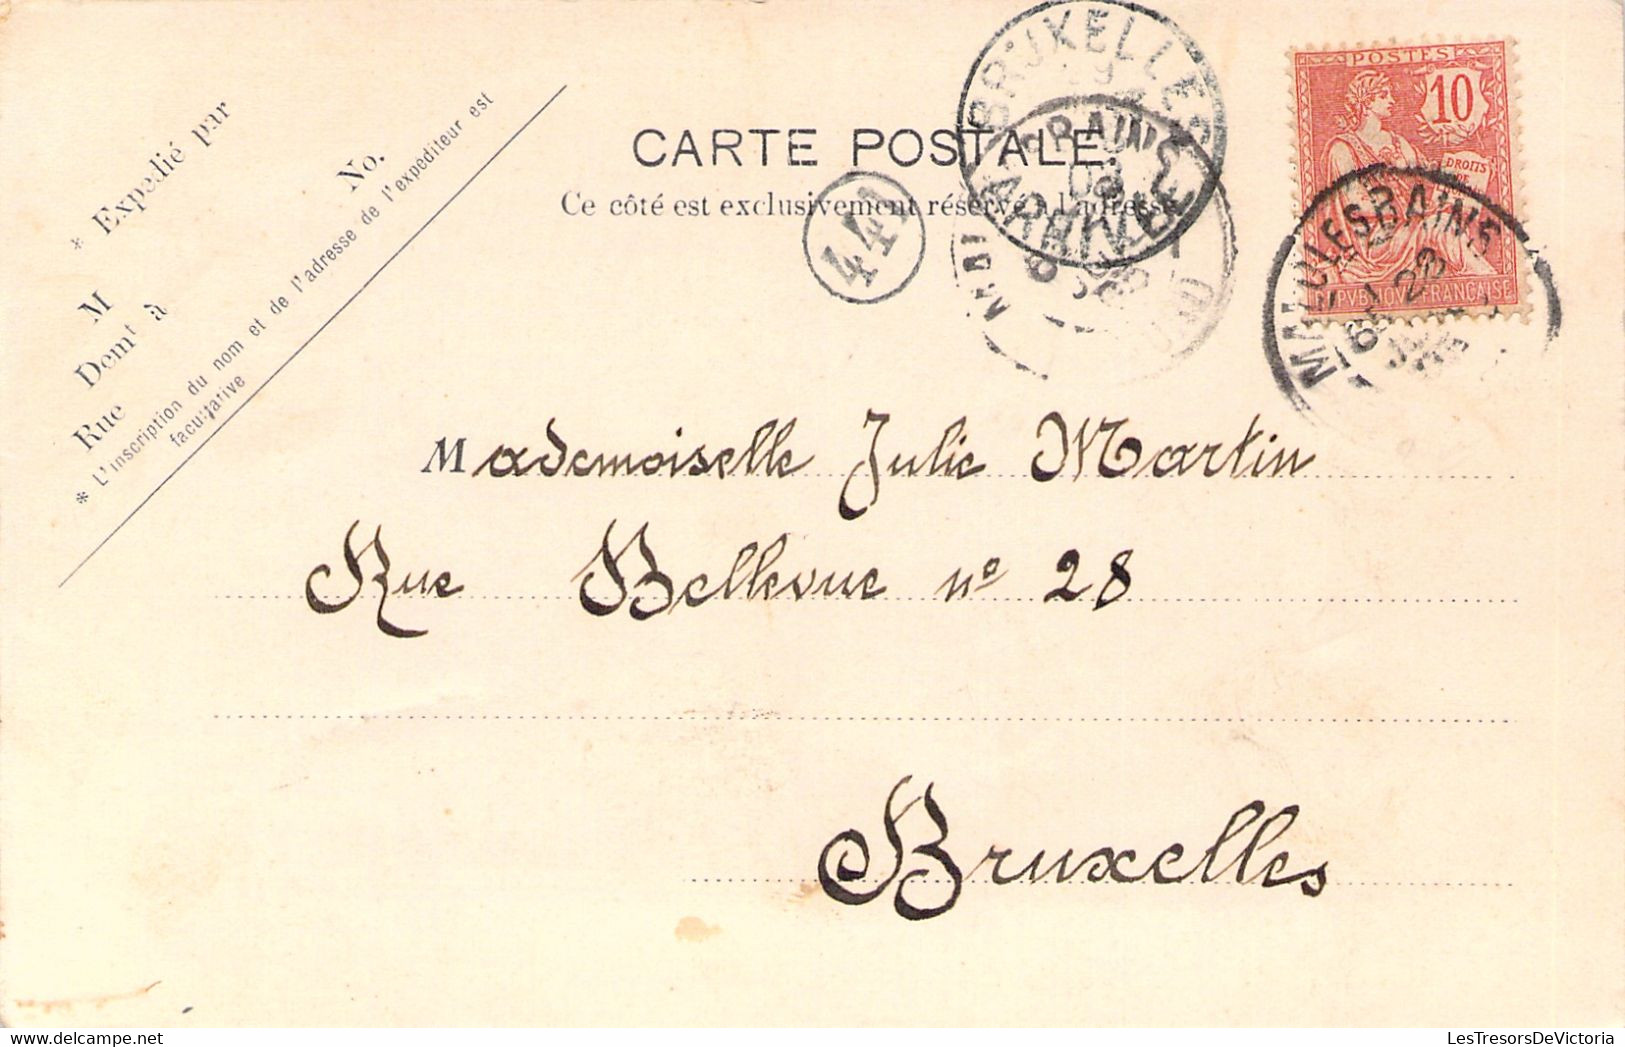 * Expedié par
M
No.
Demt à
Rue
* L'inscription du nom et de l'adresse de l'expéditeur est
facultative
CARTE POSTALE.
Ce côté est exclusivement réservé à l'adresse
BRUXELLES
ARRIVÉE
441
POSTES
10
DROITS
DE
FRANÇAISE
MALO LES BAINS
23
Mademoiselle Julie Martin
Rue Bellevue no 28
Bruxelles
LesTresorsDeVictoria